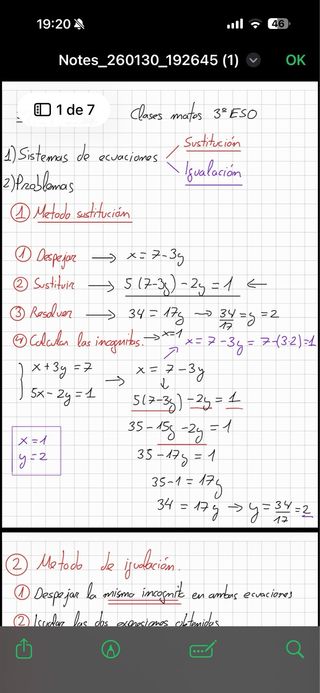 19:20
46
Notes_260130_192645 (1)
OK
1 de 7
Clases mates 3º ESO
1) Sistemas de ecuaciones
Sustitución
Igualación
2) Problemas
① Metodo sustitución
① Despejar → x = 7 - 3y
② Sustituir → 5(7-3y) - 2y = 1 ←
③ Resolver → 34 = 17y → 34/17 = y = 2
④ Calcular las incognitas. → x=1
x = 7 - 3y = 7 - (3·2) = 1
x + 3y = 7
5x - 2y = 1
→ x = 7 - 3y
↓
5(7-3y) - 2y = 1
35 - 15y - 2y = 1
35 - 17y = 1
35 - 1 = 17y
34 = 17y → y = 34/17 = 2
x = 1
y = 2
② Metodo de igualación.
① Despejar la misma incognita en ambas ecuaciones
② Igualar las dos expresiones obtenidas